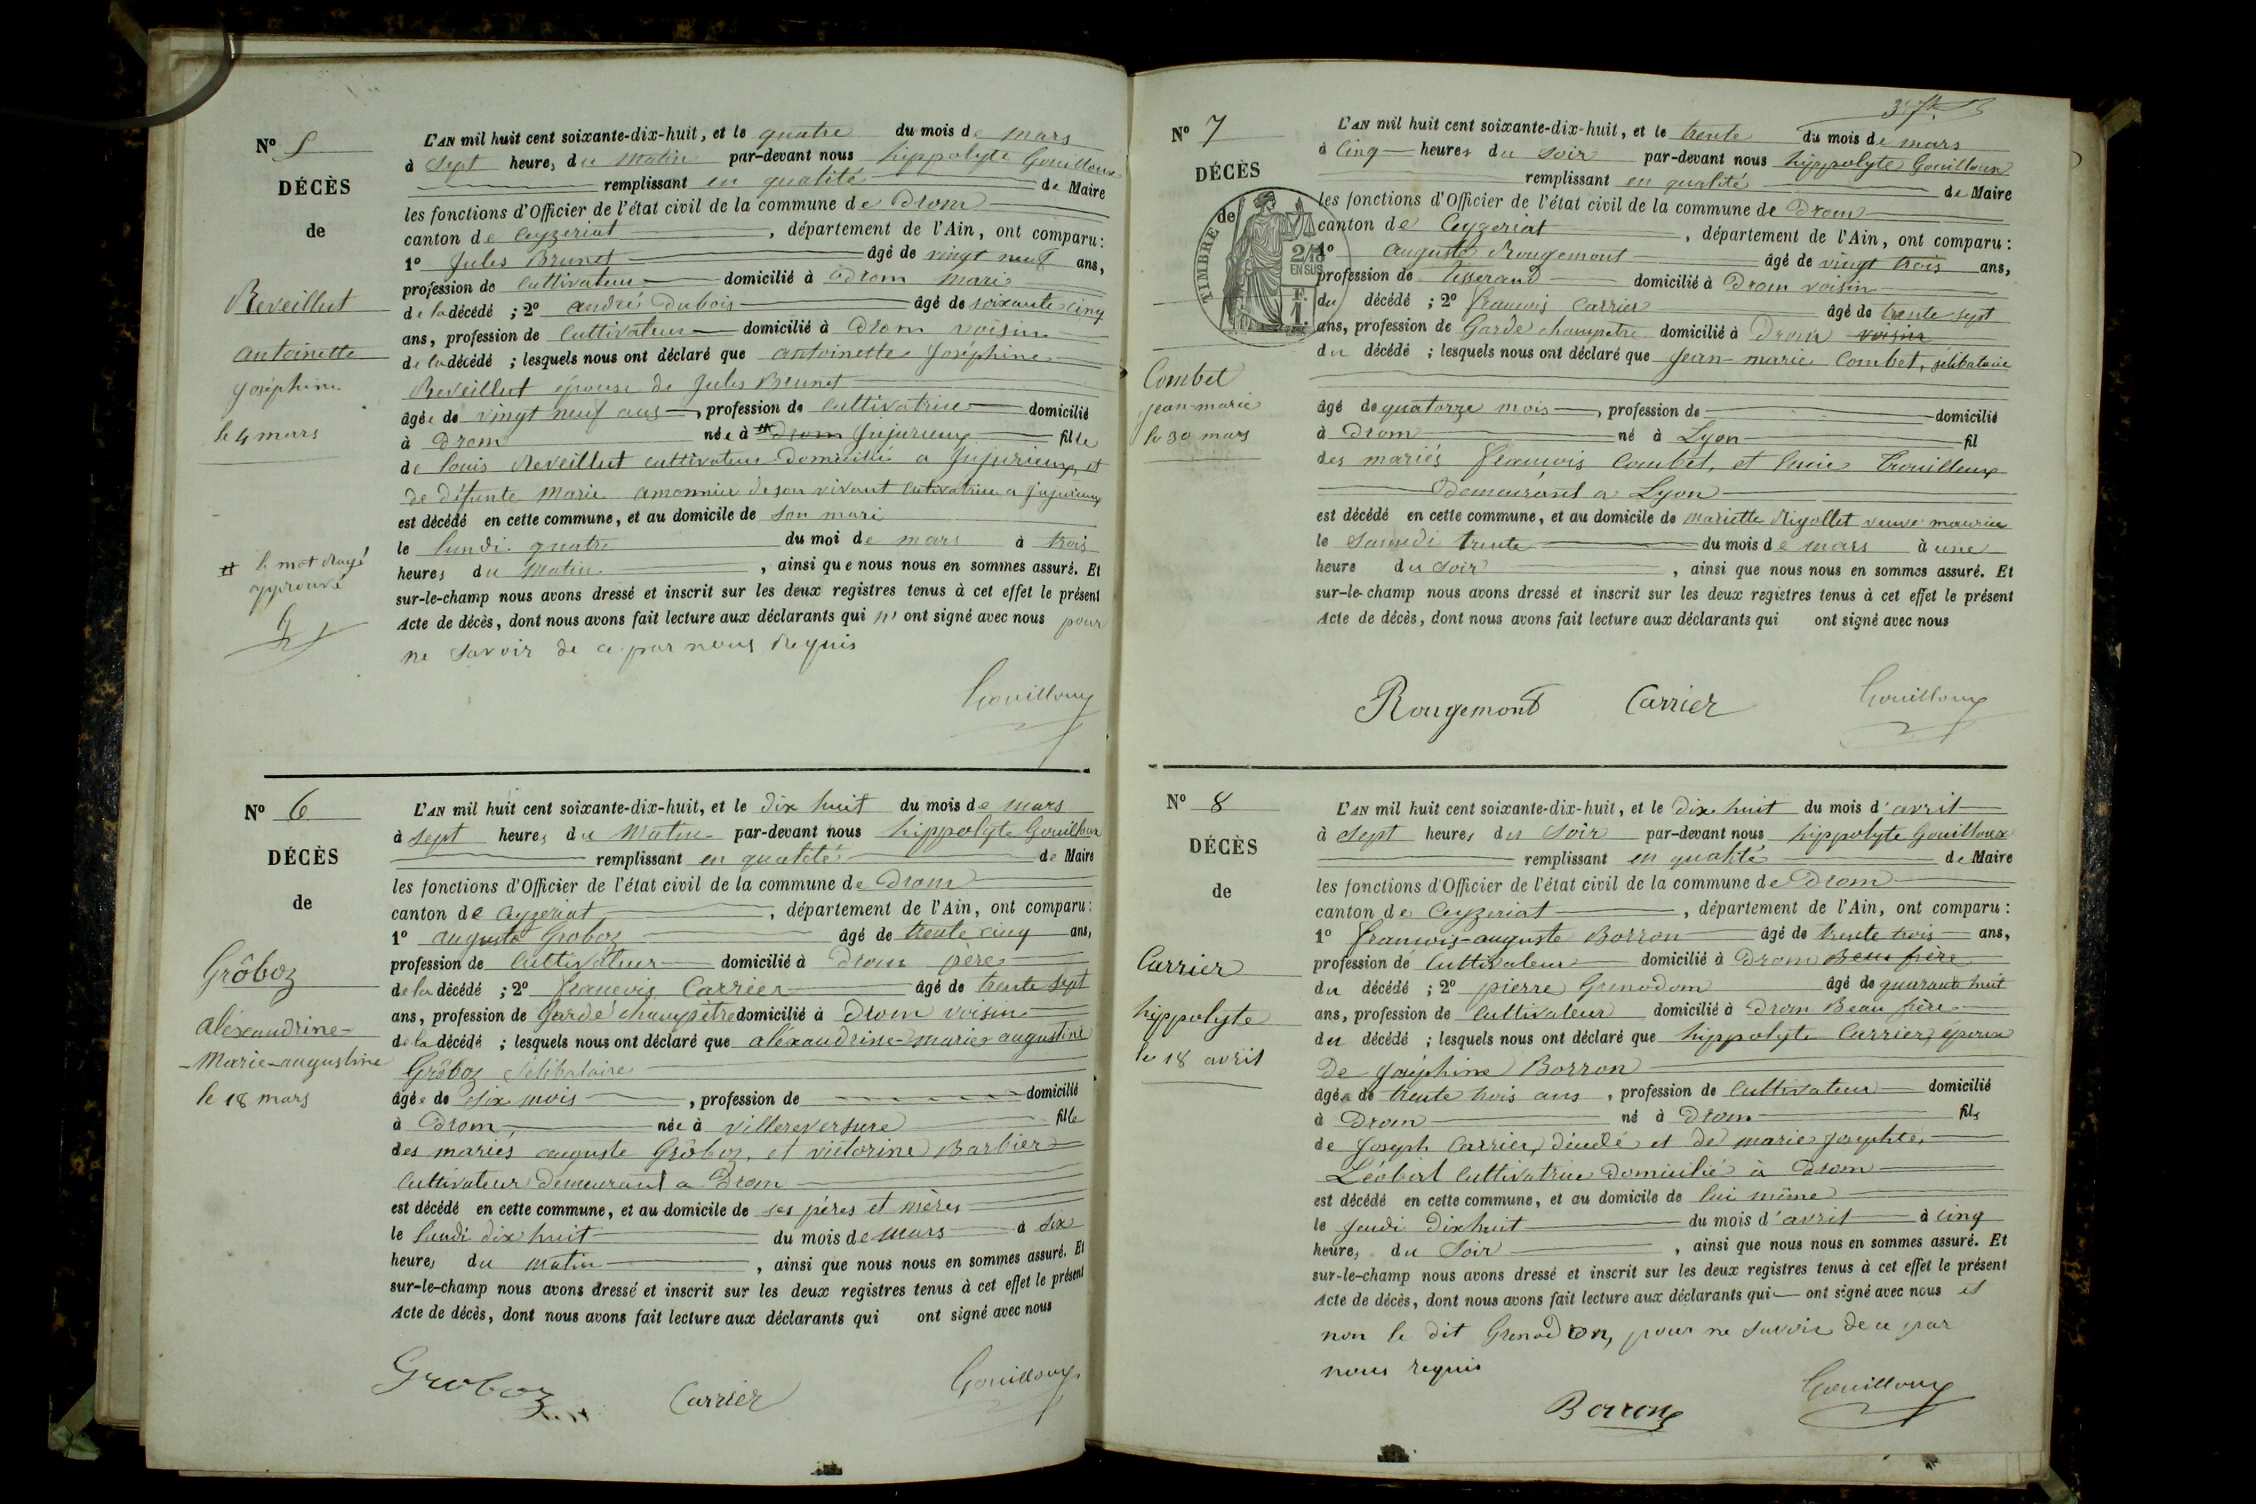 N° 5
DÉCÈS
de
Reveillut
antoinette
joséphine
le 4 mars
# le mot rayé
approuvé
L'AN mil huit cent soixante-dix-huit, et le quatre du mois de mars
à sept heures du matin par-devant nous hippolyte Gouilloux
remplissant en qualité de Maire
les fonctions d'Officier de l'état civil de la commune de Drom
canton de Ceyzeriat, département de l'Ain, ont comparu:
1° Jules Brunet âgé de vingt neuf ans,
profession de cultivateur domicilié à Drom mari
de la décédé ; 2° andré Dubois âgé de soixante cinq
ans, profession de cultivateur domicilié à Drom voisin
de la décédé ; lesquels nous ont déclaré que antoinette Joséphine
Reveillut épouse de Jules Brunet
âgée de vingt neuf ans, profession de cultivatrice domicilié
à Drom née à # Drom Jujurieux fille
de louis Reveillut cultivateur domicilié a Jujurieux, et
de défunte marie amonnier de son vivant cultivatrice a jujurieux
est décédé en cette commune, et au domicile de son mari
le lundi quatre du moi de mars à trois
heures du matin, ainsi que nous nous en sommes assuré. Et
sur-le-champ nous avons dressé et inscrit sur les deux registres tenus à cet effet le présent
Acte de décès, dont nous avons fait lecture aux déclarants qui n' ont signé avec nous pour
ne savoir de ce par nous requis
Gouilloux
N° 6
DÉCÈS
de
Grôboz
aléxandrine-
-Marie-augustine
le 18 mars
L'AN mil huit cent soixante-dix-huit, et le dix huit du mois de mars
à sept heures du matin par-devant nous hippolyte Gouilloux
remplissant en qualité de Maire
les fonctions d'Officier de l'état civil de la commune de Drom
canton de Ceyzeriat, département de l'Ain, ont comparu:
1° auguste Groboz âgé de trente cinq ans,
profession de cultivateur domicilié à Drom père
de la décédé ; 2° francois Carrier âgé de trente sept
ans, profession de Garde champêtre domicilié à Drom voisin
de la décédé ; lesquels nous ont déclaré que aléxandrine-marie augustine
Grôboz célibataire
âgée de six mois, profession de domicilié
à Drom, née à villereversure fille
des mariés auguste Grôboz, et victorine Barbier
cultivateur demeurant a Drom
est décédé en cette commune, et au domicile de ses pères et mères
le lundi dix huit du mois de mars à six
heures du matin, ainsi que nous nous en sommes assuré. Et
sur-le-champ nous avons dressé et inscrit sur les deux registres tenus à cet effet le présent
Acte de décès, dont nous avons fait lecture aux déclarants qui ont signé avec nous
Groboz Carrier Gouilloux
N° 7
DÉCÈS
de
TIMBRE
2/10
EN SUS
F.
1.
Combet
jean-marie
le 30 mars
L'AN mil huit cent soixante-dix-huit, et le trente du mois de mars
à cinq heures du soir par-devant nous hippolyte Gouilloux
remplissant en qualité de Maire
les fonctions d'Officier de l'état civil de la commune de Drom
canton de Ceyzeriat, département de l'Ain, ont comparu:
1° auguste Rougemont âgé de vingt trois ans,
profession de tisserand domicilié à Drom voisin
du décédé ; 2° francois Carrier âgé de trente sept
ans, profession de Garde champetre domicilié à Drom voisin
du décédé ; lesquels nous ont déclaré que jean-marie Combet, célibataire
âgé de quatorze mois, profession de domicilié
à Drom né à Lyon fil
des mariés francois Combet, et lucie Trouilleux
Demeurant a Lyon
est décédé en cette commune, et au domicile de mariette Rigollet veuve maurice
le Samedi trente du mois de mars à une
heure du soir, ainsi que nous nous en sommes assuré. Et
sur-le-champ nous avons dressé et inscrit sur les deux registres tenus à cet effet le présent
Acte de décès, dont nous avons fait lecture aux déclarants qui ont signé avec nous
Rougemont Carrier Gouilloux
N° 8
DÉCÈS
de
Carrier
hippolyte
le 18 avril
L'AN mil huit cent soixante-dix-huit, et le Dix huit du mois d'avril
à sept heures du soir par-devant nous hippolyte Gouilloux
remplissant en qualité de Maire
les fonctions d'Officier de l'état civil de la commune de Drom
canton de Ceyzeriat, département de l'Ain, ont comparu:
1° francois-auguste Borron âgé de trente trois ans,
profession de cultivateur domicilié à Drom Beau frère
du décédé ; 2° pierre Grenodom âgé de quarante huit
ans, profession de cultivateur domicilié à Drom Beau frère
du décédé ; lesquels nous ont déclaré que hippolyte Carrier, epoux
de joséphine Borron
âgé de trente trois ans, profession de cultivateur domicilié
à Drom né à Drom fils
de Joseph Carrier, décédé et de marie josephte
Léobert cultivatrice domicilié à Drom
est décédé en cette commune, et au domicile de lui même
le jeudi dix huit du mois d'avril à cinq
heures du soir, ainsi que nous nous en sommes assuré. Et
sur-le-champ nous avons dressé et inscrit sur les deux registres tenus à cet effet le présent
Acte de décès, dont nous avons fait lecture aux déclarants qui ont signé avec nous et
non le dit Grenodon, pour ne savoir de ce par
nous requis
Borron Gouilloux